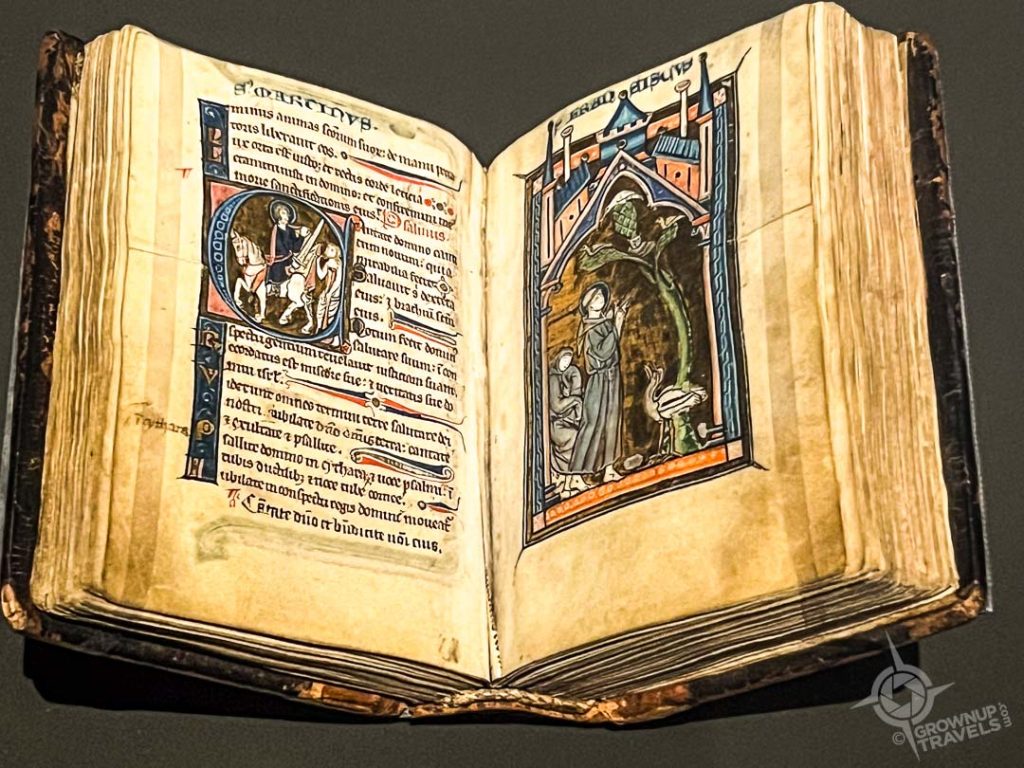 S MARTINVS.
minus animas scōrum suor: de manu
toris liberauit eos.
ux orta est iusto: et rectis corde leticia
etamini iusti in domino: et confitemini
morie sanctificationis eius. Psalmus.
Cantate domino canti
cum nouum: quia
mirabilia fecit.
Saluauit s dextera
eius: & brachium scm
eius.
Notum fecit domin
salutare suum: in con
spectu gentium reuelauit iusticiam suam.
ecordatus est sue: & ueritatis sue do
mui isrl.
iderunt omnes termini terre salutare dei
nostri. iubilate dño terra: cantate
& exultate & psallite.
sallite domino in cythara, & uoce psalmi: i
tubis ductilib; & uoce tube cornee.
ubilate in conspectu regis domini: moueat
Cantate dño et bndicite noi eius.
cythara
FRANCISCUS
© GROWNUP
TRAVELS.com